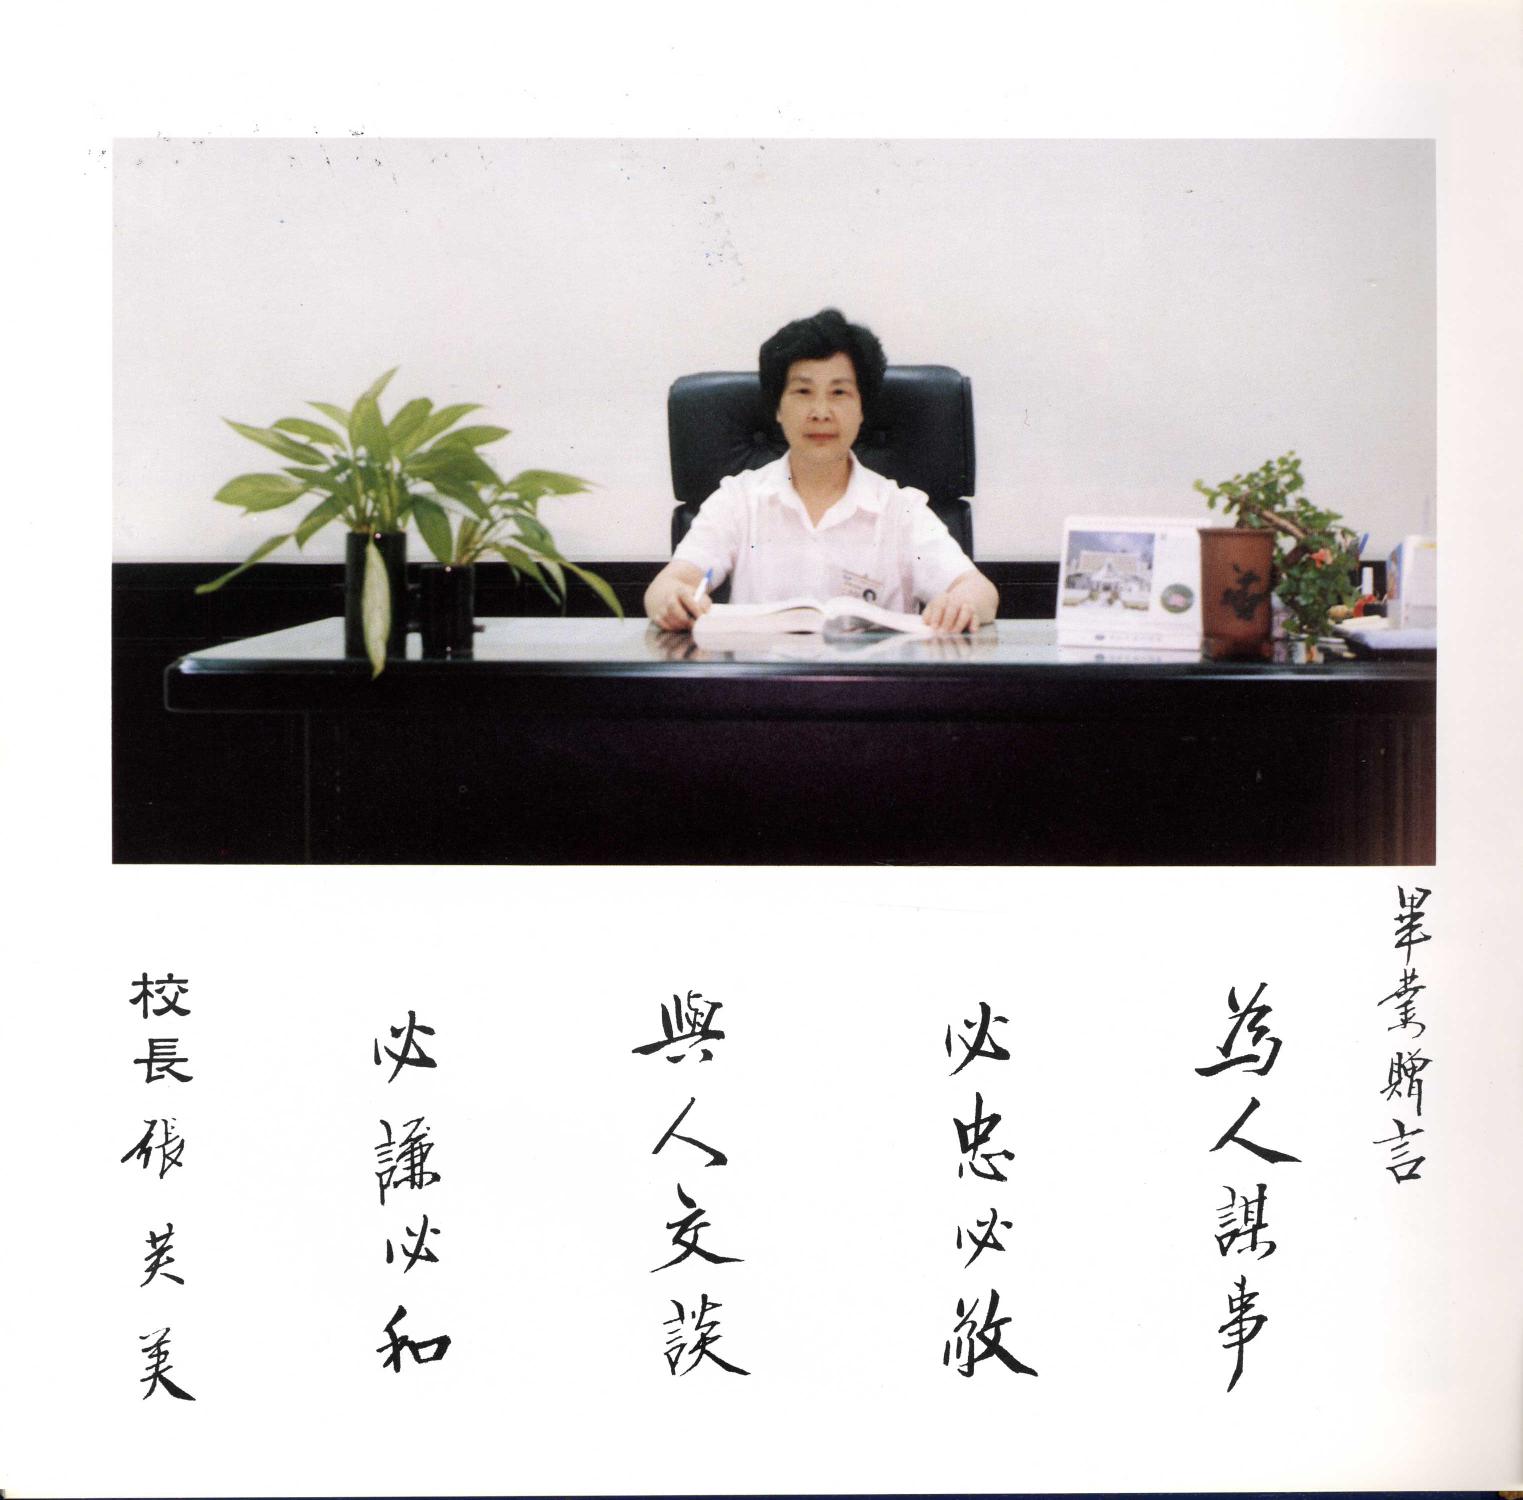 畢業贈言
為人謀事
必忠必敬
與人交談
必謙必和
校長 張芙美